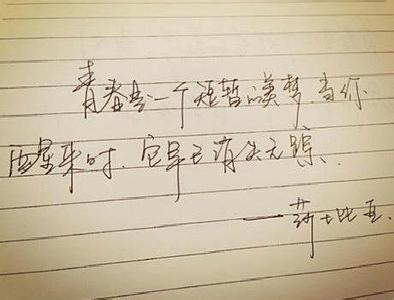 青春是一个短暂的美梦,当你
醒来时,它早已消失无踪
——莎士比亚